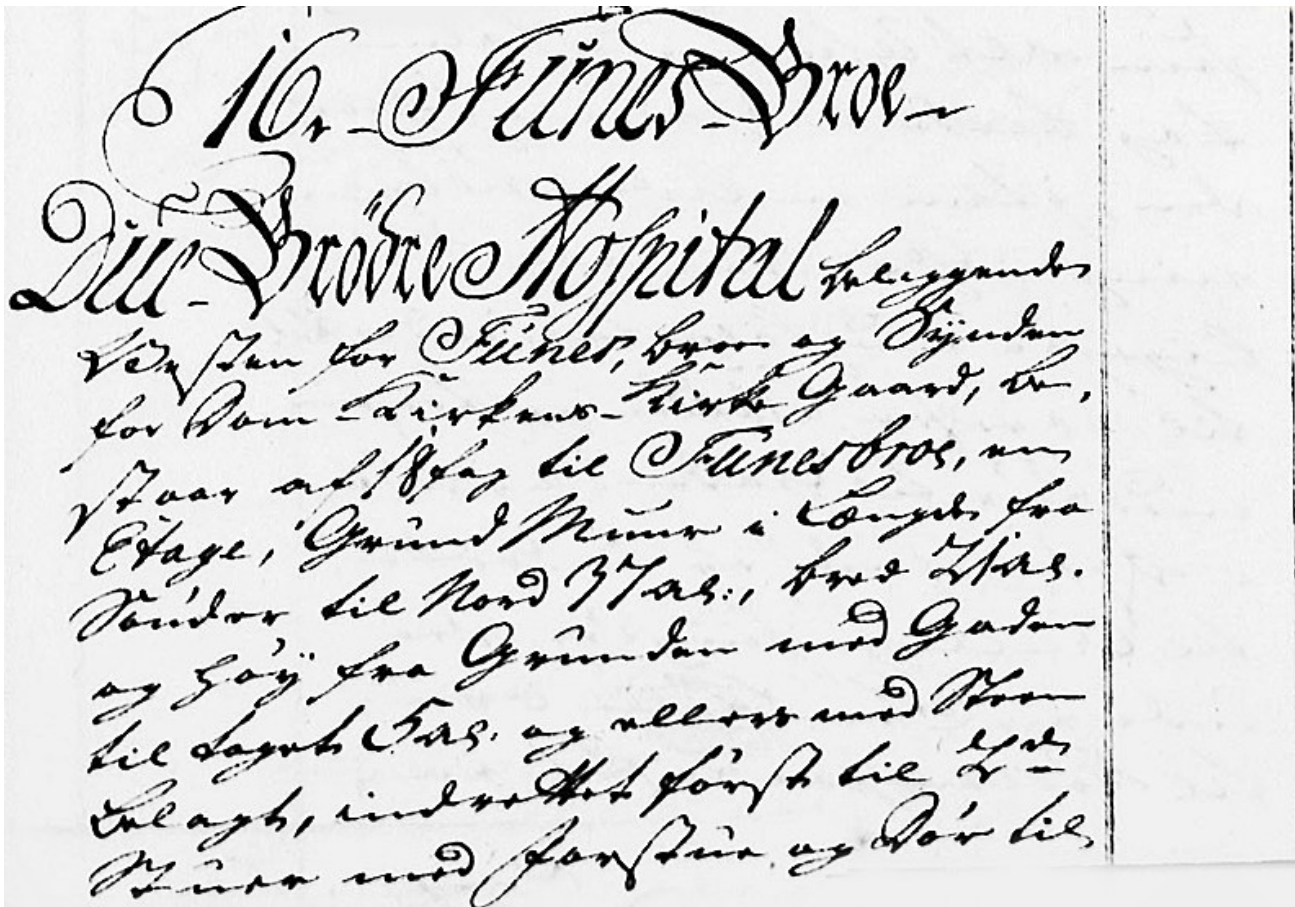 16. Fünes Broe
Duc-Brödre Hospital beliggende
Vesten for Fünes, broe og Synden
for Dom-Kirkens-Kirke Gaard, be,
staar af 18 fag til Fünesbroe, en
Etage, Grund Muur i Længde fra
Sönder til Nord 37 al:, bred 21 al.
og höÿ fra Grunden med Gaden
til taget 5 al. og ellers med Steen
belagt, indrettet först til
Stuer med forstue og Dör til